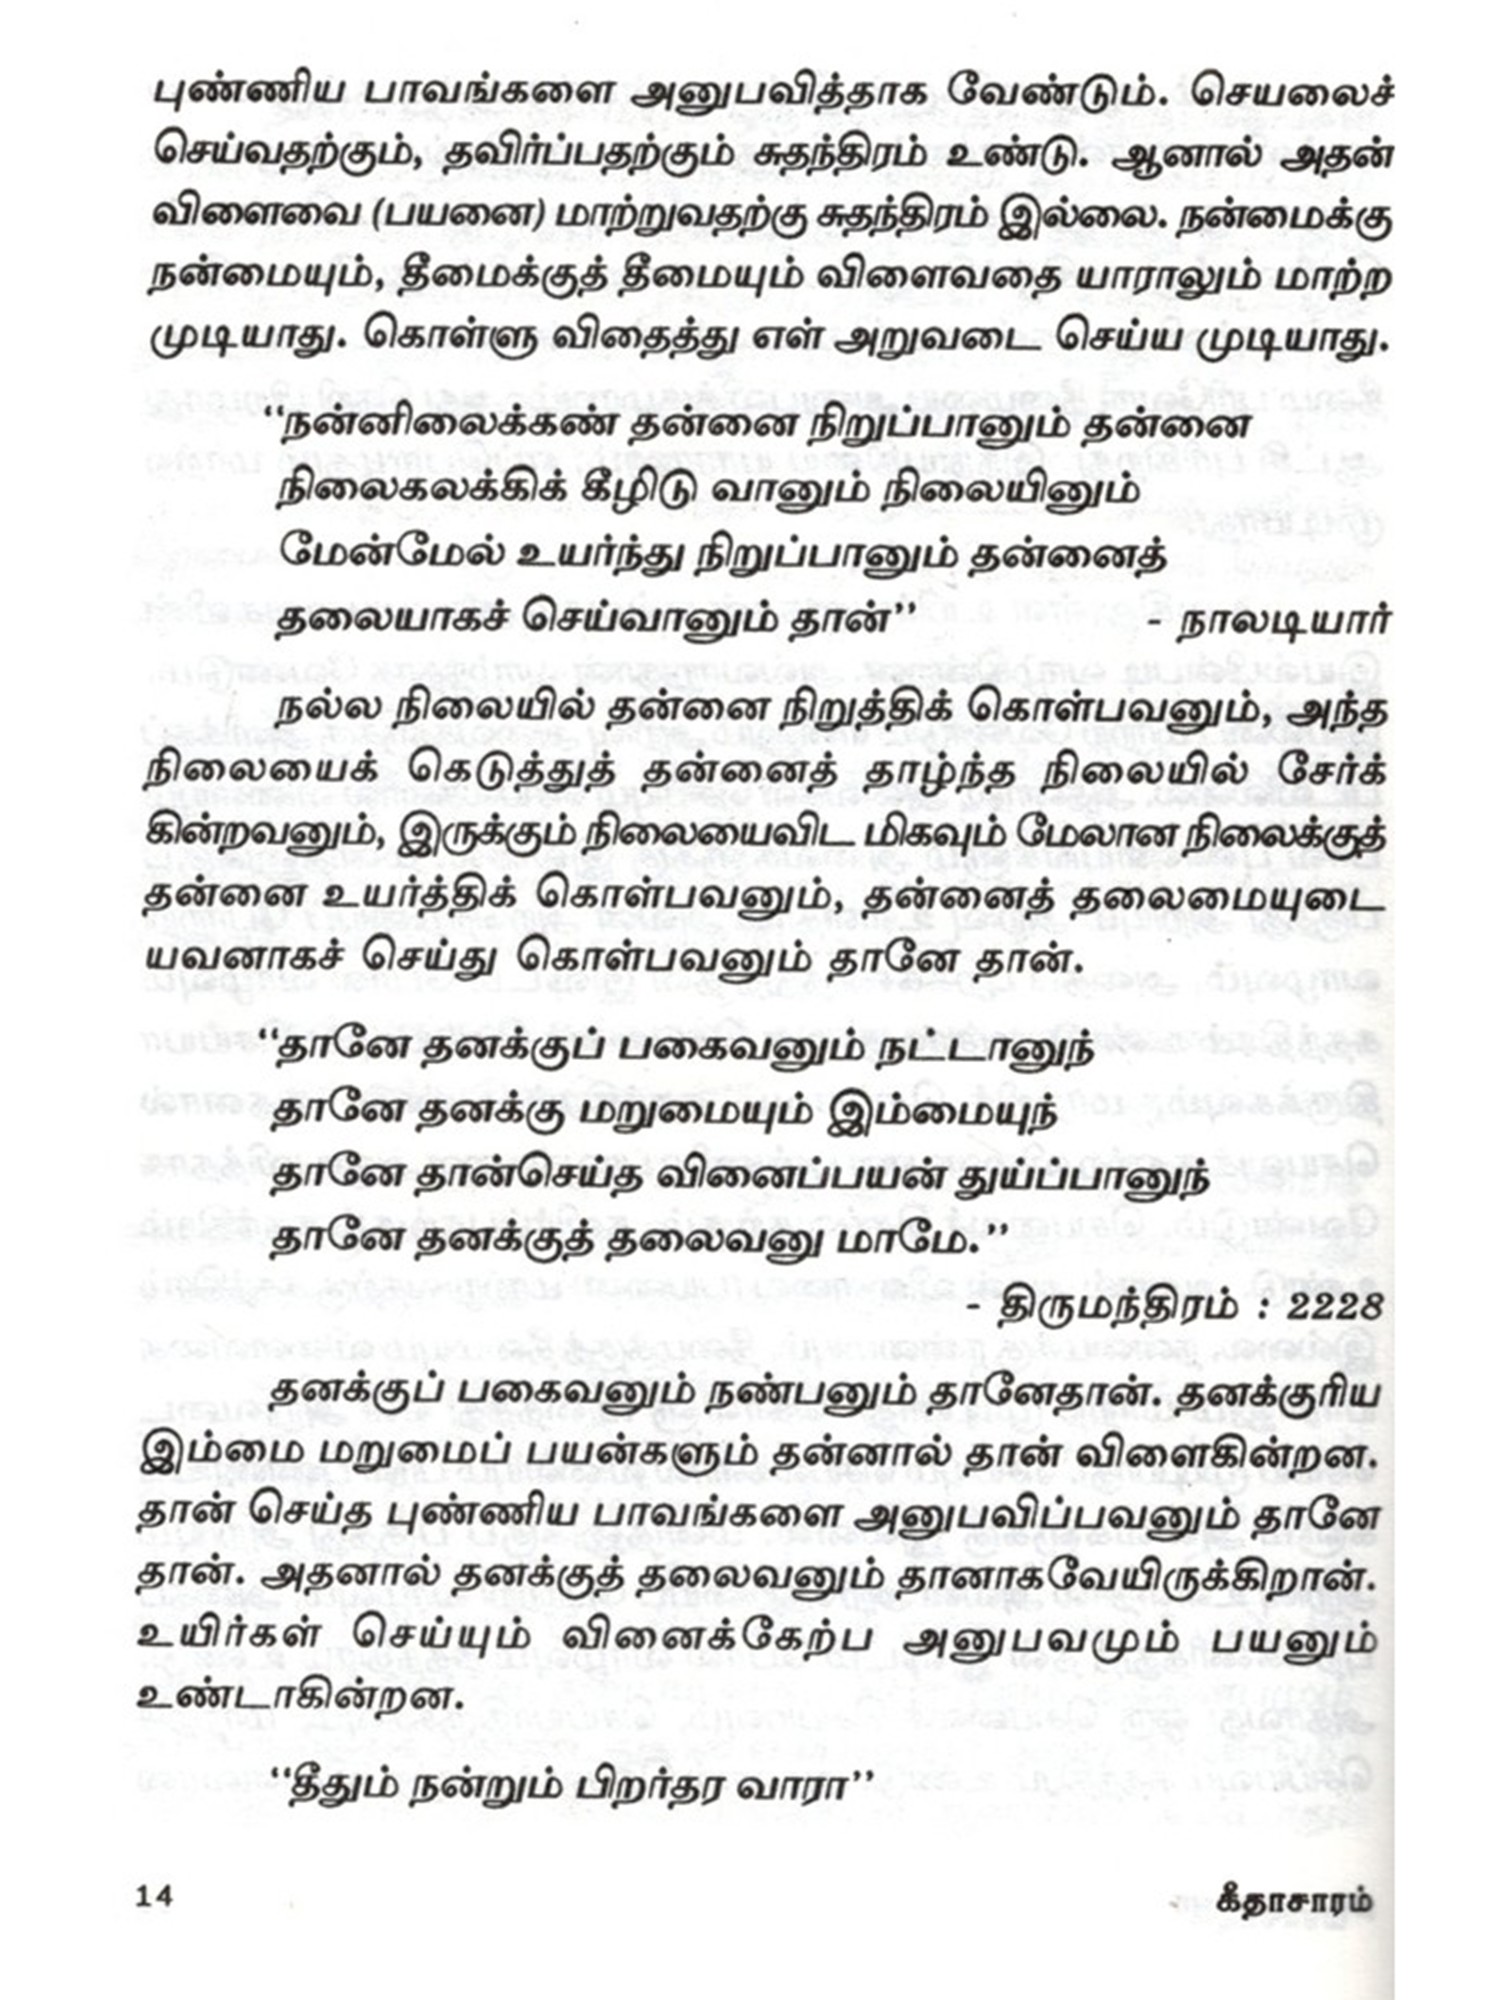 புண்ணிய பாவங்களை அனுபவித்தாக வேண்டும். செயலைச்
செய்வதற்கும், தவிர்ப்பதற்கும் சுதந்திரம் உண்டு. ஆனால் அதன்
விளைவை (பயனை) மாற்றுவதற்கு சுதந்திரம் இல்லை. நன்மைக்கு
நன்மையும், தீமைக்குத் தீமையும் விளைவதை யாராலும் மாற்ற
முடியாது. கொள்ளு விதைத்து எள் அறுவடை செய்ய முடியாது.
“நன்னிலைக்கண் தன்னை நிறுப்பானும் தன்னை
நிலைகலக்கிக் கீழிடு வானும் நிலையினும்
மேன்மேல் உயர்ந்து நிறுப்பானும் தன்னைத்
தலையாகச் செய்வானும் தான்” - நாலடியார்
நல்ல நிலையில் தன்னை நிறுத்திக் கொள்பவனும், அந்த
நிலையைக் கெடுத்துத் தன்னைத் தாழ்ந்த நிலையில் சேர்க்
கின்றவனும், இருக்கும் நிலையைவிட மிகவும் மேலான நிலைக்குத்
தன்னை உயர்த்திக் கொள்பவனும், தன்னைத் தலைமையுடை
யவனாகச் செய்து கொள்பவனும் தானே தான்.
“தானே தனக்குப் பகைவனும் நட்டானுந்
தானே தனக்கு மறுமையும் இம்மையுந்
தானே தான்செய்த வினைப்பயன் துய்ப்பானுந்
தானே தனக்குத் தலைவனு மாமே.”
- திருமந்திரம் : 2228
தனக்குப் பகைவனும் நண்பனும் தானேதான். தனக்குரிய
இம்மை மறுமைப் பயன்களும் தன்னால் தான் விளைகின்றன.
தான் செய்த புண்ணிய பாவங்களை அனுபவிப்பவனும் தானே
தான். அதனால் தனக்குத் தலைவனும் தானாகவேயிருக்கிறான்.
உயிர்கள் செய்யும் வினைக்கேற்ப அனுபவமும் பயனும்
உண்டாகின்றன.
“தீதும் நன்றும் பிறர்தர வாரா”
14 கீதாசாரம்